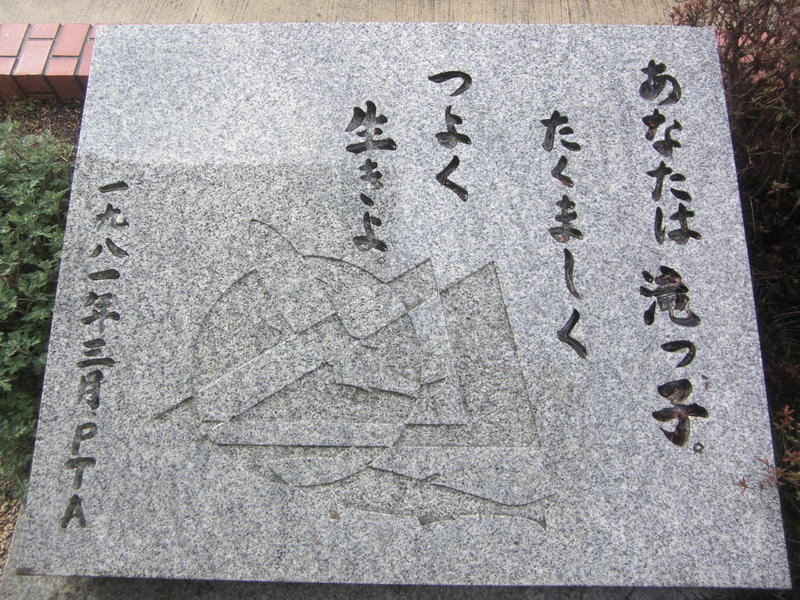 あなたは滝っ子。
たくましく
つよく
生きよ
一九八一年三月PTA